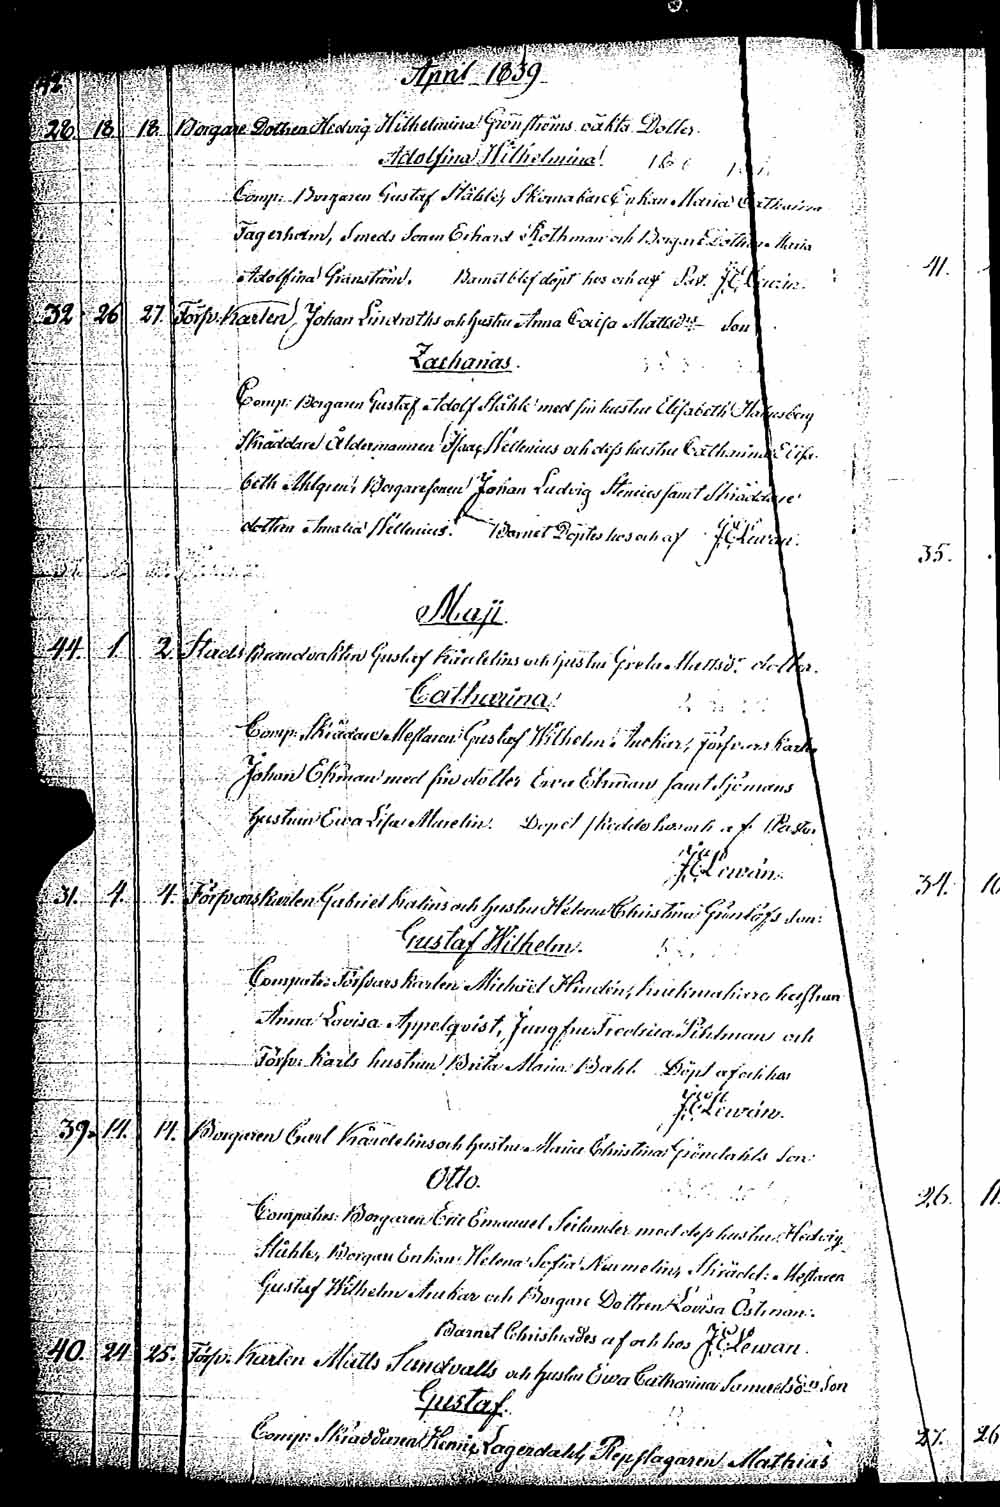 April 1839
28. 18. 18. Borgare Dottren Hedvig Wilhelmina Grönströms oäkta Dotter
Adolfina Wilhelmina
Comp: Borgaren Gustaf Ståhle, Skomakare Enkan Maria Catharina
Fagerholm, Smeds Sonen Erhard Rothman och Borgare Dottren Maria
Adolfina Granström. Barnet blef döpt hos och af J.C. Lewan.
32 26 27. Försv. Karlen Johan Lindroths och hustru Anna Caisa Mattsdr Son
Zacharias.
Comp: Borgaren Gustaf Adolf Ståhle med sin hustru Elisabeth
Skräddare Åldermannen Isaac Wellenius och dess hustru Catharina Elisa-
beth Ahlgren, Borgaresonen Johan Ludvig Stenius samt Skräddare
dottren Amalia Wellenius. Barnet Döptes hos och af J.C. Lewan.
Maji
44. 1. 2. Stads Brandvakten Gustaf Kärdelins och hustru Greta Mattsdr dotter.
Catharina
Comp: Skräddare Mestaren Gustaf Wilhelm Anckar, Försvars Karlen
Johan Ekman med sin dotter Ewa Ekman samt Sjömans
hustrun Ewa Lisa Murelin. Dopet skedde hos och af Pastor
J.C. Lewan.
31. 4. 4. Försvarskarlen Gabriel Kalins och hustru Helena Christina Grönlöfs Son:
Gustaf Wilhelm.
Compatr: Försvars karlen Michäel Hindén, hustrun
Anna Lovisa Appelqvist, Jungfru Fredrica Sihlman och
Försv: Karls hustrun Brita Maria Dahl. Döpt af och hos
J.C. Lewan.
39. 14. 14. Borgaren Carl Kärdelins och hustru Maria Christina Gröndahls Son
Otto.
Compatres: Borgaren Eric Emanuel Seilander med dess hustru Hedvig
Ståhle, Borgare Enkan Helena Sofia Neumelin, Skrädd: Mestaren
Gustaf Wilhelm Anckar och Borgare Dottren Lovisa Östman.
Barnet Christnades af och hos J.C. Lewan.
40. 24 25. Försv. Karlen Matts Sundvalls och hustru Ewa Catharina Samuelsdr Son
Gustaf.
Comp: Skräddaren Henric Lagerdahl, Repslagaren Mathias
41.
35.
34. 10
26. 11.
27. 26